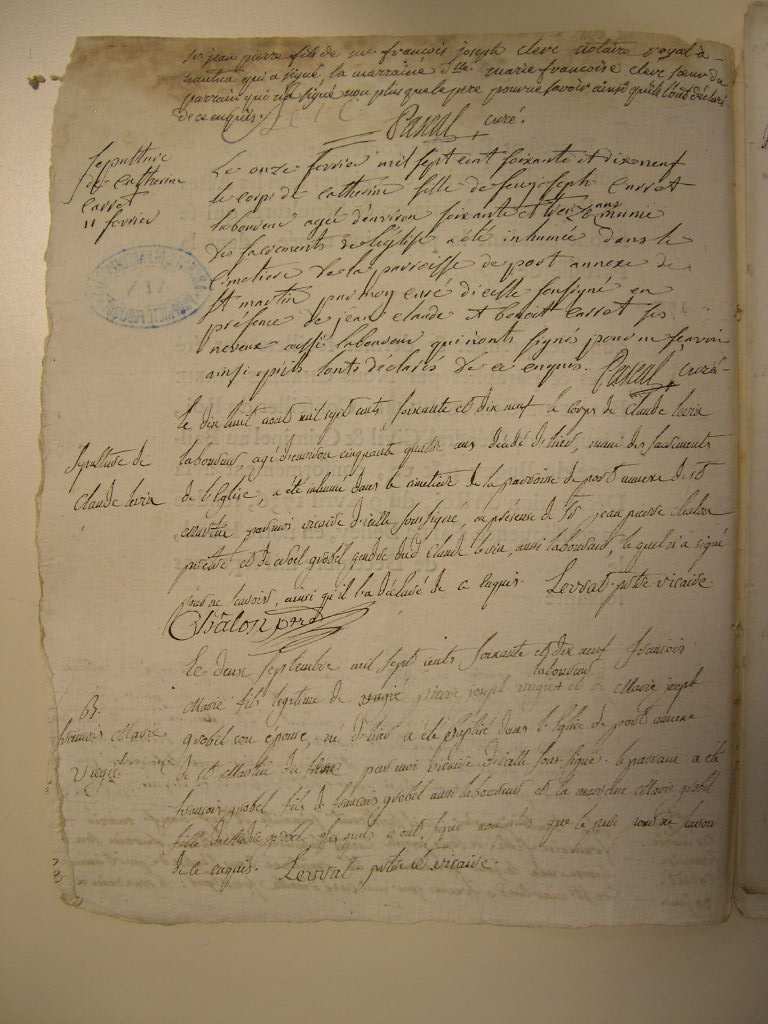 sr jean pierre fils de mr francois joseph clerc notaire royal a
nantua qui a signé, la marraine dlle marie francoise clerc soeur du
parrain qui n'a signé non plus que le pere pour ne savoir ainsi qu'ils l'ont déclaré
de ce enquis.
Pascal curé.
sepulture
de catherine
carrot
11 fevrier
Le onze fevrier mil sept cent soixante et dix neuf
le corps de catherine fille de feu joseph carrot
laboureur agée d'environ soixante et treize ans munie
des sacrements de l'église a été inhumée dans le
cimetiere de la parroisse de port annexe de
st martin par moy curé d'icelle soussigné en
présence de jean claude et benoit carrot ses
neveux aussi laboureur qui n'ont signés pour ne scavoir
ainsi qu'ils l'ont déclarés de ce enquis. Pascal curé
Sepulture de
Claude levra
Le dix huit aout mil sept cents soixante et dix neuf le corps de Claude levra
laboureur, agé d'environ cinquante quatre ans décédé d'hier, muni des sacrements
de l'Eglise, a été inhumé dans le cimetiere de la parroisse de port annexe de st
martin par moi vicaire d'icelle soussigné, en présence de sr jean pierre chalon
prêtre et de grobel gendre dud. Claude levra, aussi laboureur, lequel n'a signé
pour ne savoir, ainsi qu'il l'a déclaré de ce enquis. Levrat ptre vicaire
Châlon ptre
B.
francois Marie
Le deux septembre mil sept cents soixante et dix neuf francois
Marie fils legitime de pierre joseph laboureur et de Marie joseph
grobel son epouse, né d'hier a été baptisé dans l'Eglise de port annexe
de st Martin du frêne par moi vicaire d'icelle sous-signé. le parrain a été
francois grobel fils de francois grobel aussi laboureur et la marraine Marie grobel
fille grobel signé non plus que le pere pour ne savoir
de ce enquis. Levrat ptre vicaire.